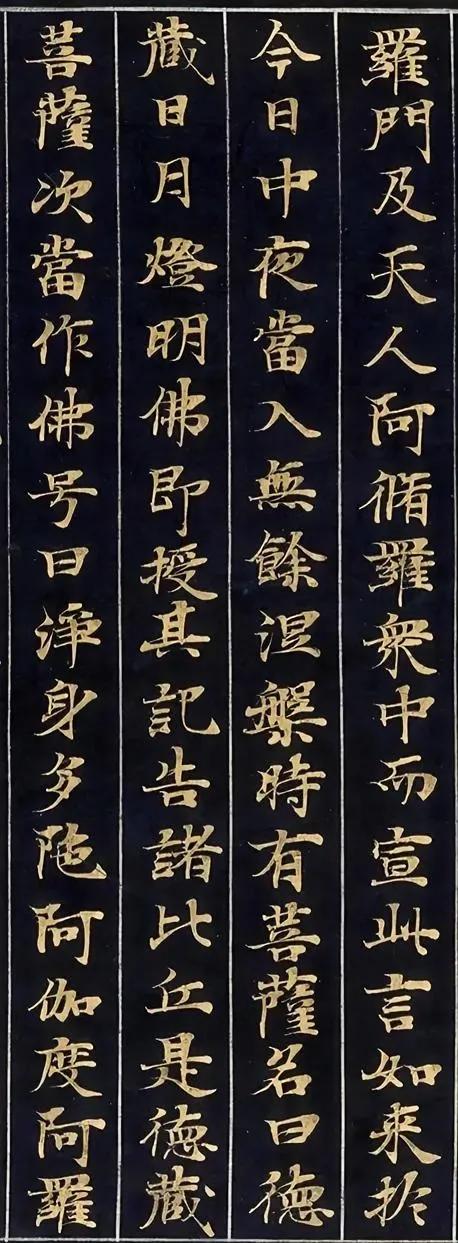 羅門及天人阿脩羅衆中而宣此言如来於
今日中夜當入無餘涅槃時有菩薩名曰徳
藏日月燈明佛即授其記告諸比丘是徳藏
菩薩次當作佛号曰淨身多陁阿伽度阿羅